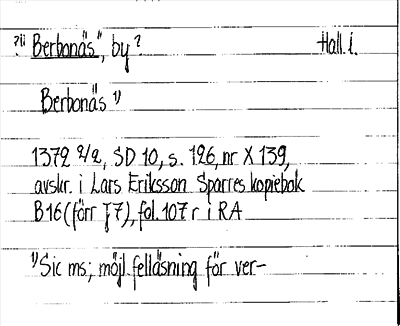 ?¹⁾ "Berbonäs", by ? Hall. l.
Berbonäs ¹⁾
1379 2/2, SD 10, s. 126, nr X 139,
avskr. i Lars Eriksson Sparres kopiebok
B16 (förr J7), fol. 107 r i RA
¹⁾ Sic ms; möjl. felläsning för ver-